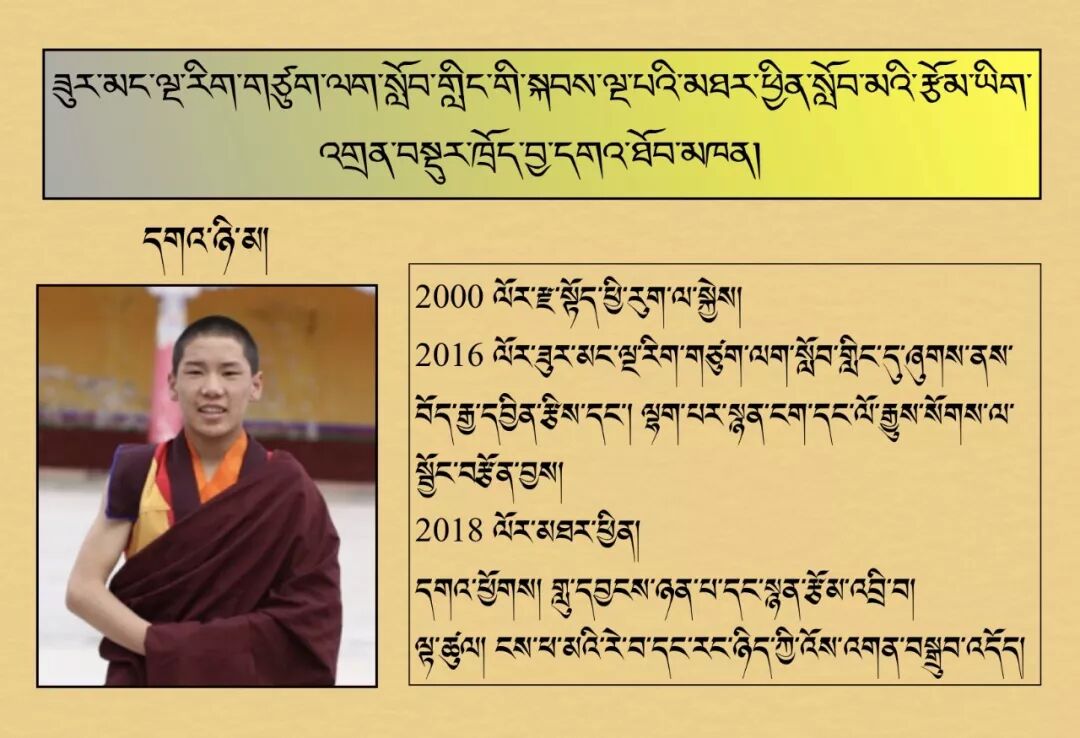 ཟུར་མང་ལྔ་རིག་གཙུག་ལག་སློབ་གླིང་གི་སྐབས་ལྔ་པའི་མཐར་ཕྱིན་སློབ་མའི་རྩོམ་ཡིག་
འགྲན་བསྡུར་ཁྲོད་བྱ་དགའ་ཐོབ་མཁན།
དགའ་ཉི་མ།
2000 ལོར་རྫ་སྟོད་ཕྱི་རུག་ལ་སྐྱེས།
2016 ལོར་ཟུར་མང་ལྔ་རིག་གཙུག་ལག་སློབ་གླིང་དུ་ཞུགས་ནས་
བོད་རྒྱ་དབྱིན་རྩིས་དང་། ལྷག་པར་སྙན་ངག་དང་ལོ་རྒྱུས་སོགས་ལ་
སྦྱོང་བརྩོན་བྱས།
2018 ལོར་མཐར་ཕྱིན།
དགའ་ཕྱོགས། གླུ་དབྱངས་ཉན་པ་དང་སྙན་རྩོམ་འབྲི་བ།
ལྟ་ཚུལ། ངས་ཕ་མའི་རེ་བ་དང་རང་ཉིད་ཀྱི་འོས་འགན་བསྒྲུབ་འདོད།